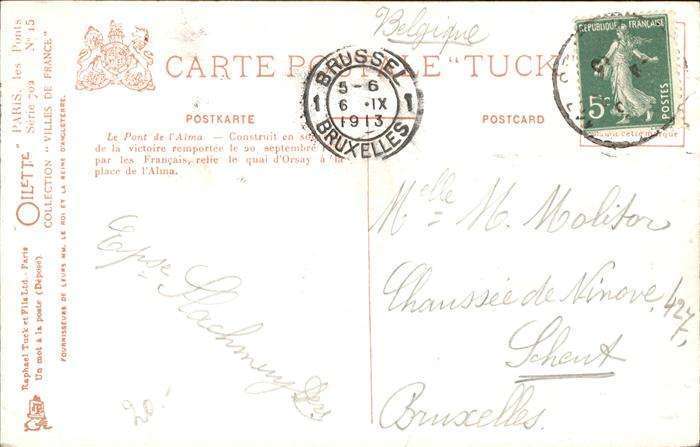 "OILETTE" PARIS, les Ponts
Série 702 Nº 15
COLLECTION "VILLES DE FRANCE"
FOURNISSEURS DE LEURS MM. LE ROI ET LA REINE D'ANGLETERRE.
Raphael Tuck et Fils Ltd - Paris
Un mot à la poste (Déposé)
Belgique
CARTE POSTALE "TUCK
POSTKARTE
POSTCARD
BRUSSEL
5-6
1 6 IX 1
1913
BRUXELLES
REPUBLIQUE FRANÇAISE
5c
POSTES
Le Pont de l'Alma. — Construit en
de la victoire remportée le 20 septembre
par les Français, relie le quai d'Orsay à la
place de l'Alma.
Melle M. Molitor
Chaussée de Ninove, 427,
Scheut
Bruxelles.